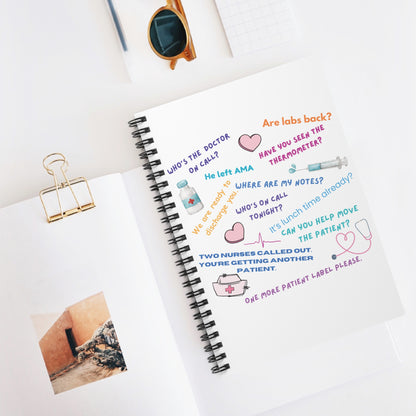 Are labs back?
WHO'S THE DOCTOR
ON CALL?
HAVE YOU SEEN THE
THERMOMETER?
He left AMA
WHERE ARE MY NOTES?
We are ready to
discharge you
WHO'S ON CALL
TONIGHT?
It's lunch time already?
CAN YOU HELP MOVE
THE PATIENT?
TWO NURSES CALLED OUT.
YOU'RE GETTING ANOTHER
PATIENT.
ONE MORE PATIENT LABEL PLEASE.